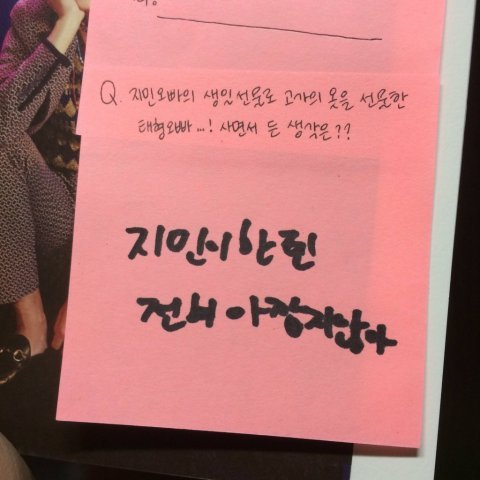 Q. 지민오빠의 생일선물로 고가의 옷을 선물한
태형오빠...! 사면서 든 생각은??
지민이한텐
전혀 아깝지않아